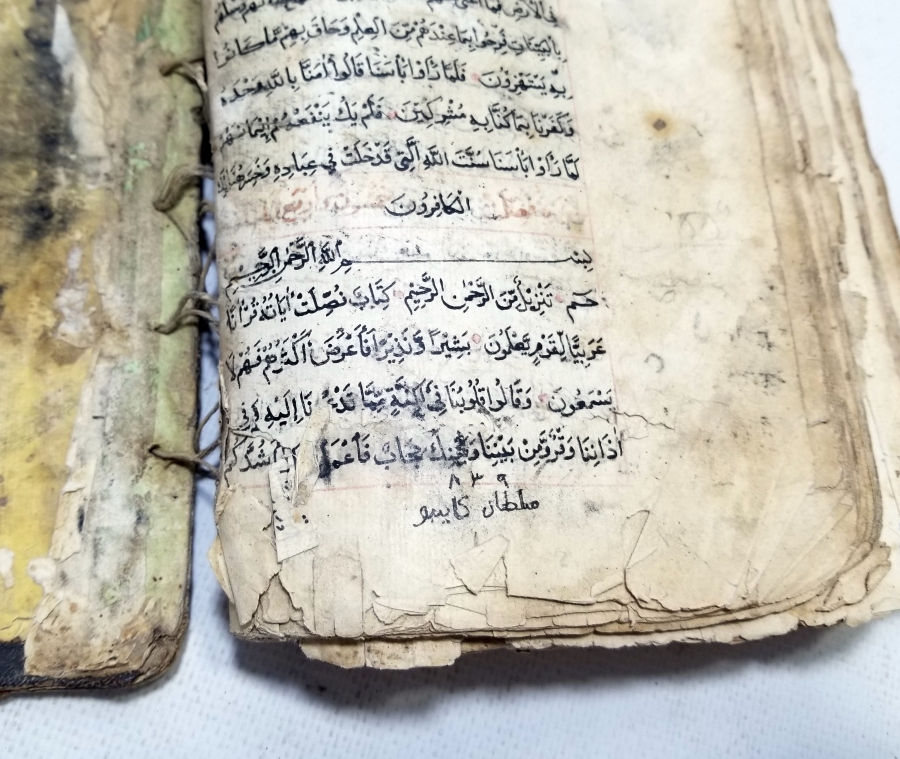 في الأرض فما أغنى
بالبينات فرحوا بما عندهم من العلم وحاق بهم ما كانوا
به يستهزؤن فلما راوا باسنا قالوا امنا بالله وحده
وكفرنا بما كنا به مشركين فلم يك ينفعهم ايمانهم
لما راوا باسنا سنت الله التي قد خلت في عباده وخسر هنالك
الكافرون
بسم الله الرحمن الرحيم
حم تنزيل من الرحمن الرحيم كتاب فصلت اياته قرانا
عربيا لقوم يعلمون بشيرا ونذيرا فاعرض اكثرهم فهم لا
يسمعون وقالوا قلوبنا في اكنة مما تدعونا اليه وفي
اذاننا وقر ومن بيننا وبينك حجاب فاعمل
٨٣٩
سلطان